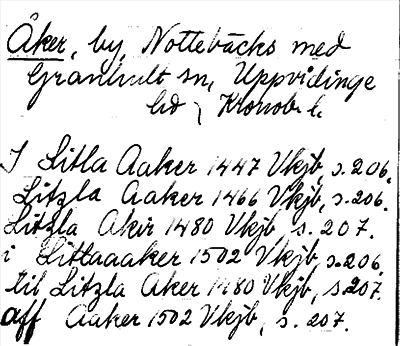 Åker, by, Nottebäcks med
Granhult sn, Uppvidinge
hd, Kronob. l.
I Litla Aaker 1447 Vkjb, s. 206.
Litzla Aaker 1466 Vkjb, s. 206.
Litzla Akir 1480 Vkjb, s. 207.
i Litlaaaker 1502 Vkjb, s. 206.
til Litzla Aker 1480 Vkjb, s. 207.
aff Aaker 1502 Vkjb, s. 207.